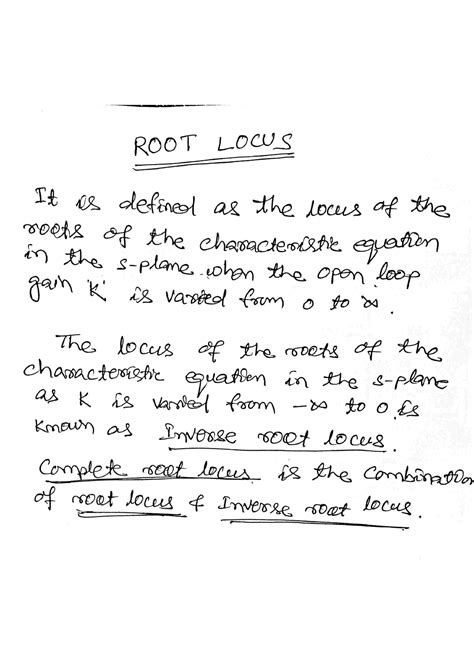 ROOT LOCUS
It is defined as the locus of the
roots of the characteristic equation
in the s-plane when the open loop
gain 'K' is varied from 0 to ∞.
The locus of the roots of the
characteristic equation in the s-plane
as K is varied from -∞ to 0 is
known as Inverse root locus.
Complete root locus is the combination
of root locus & Inverse root locus.